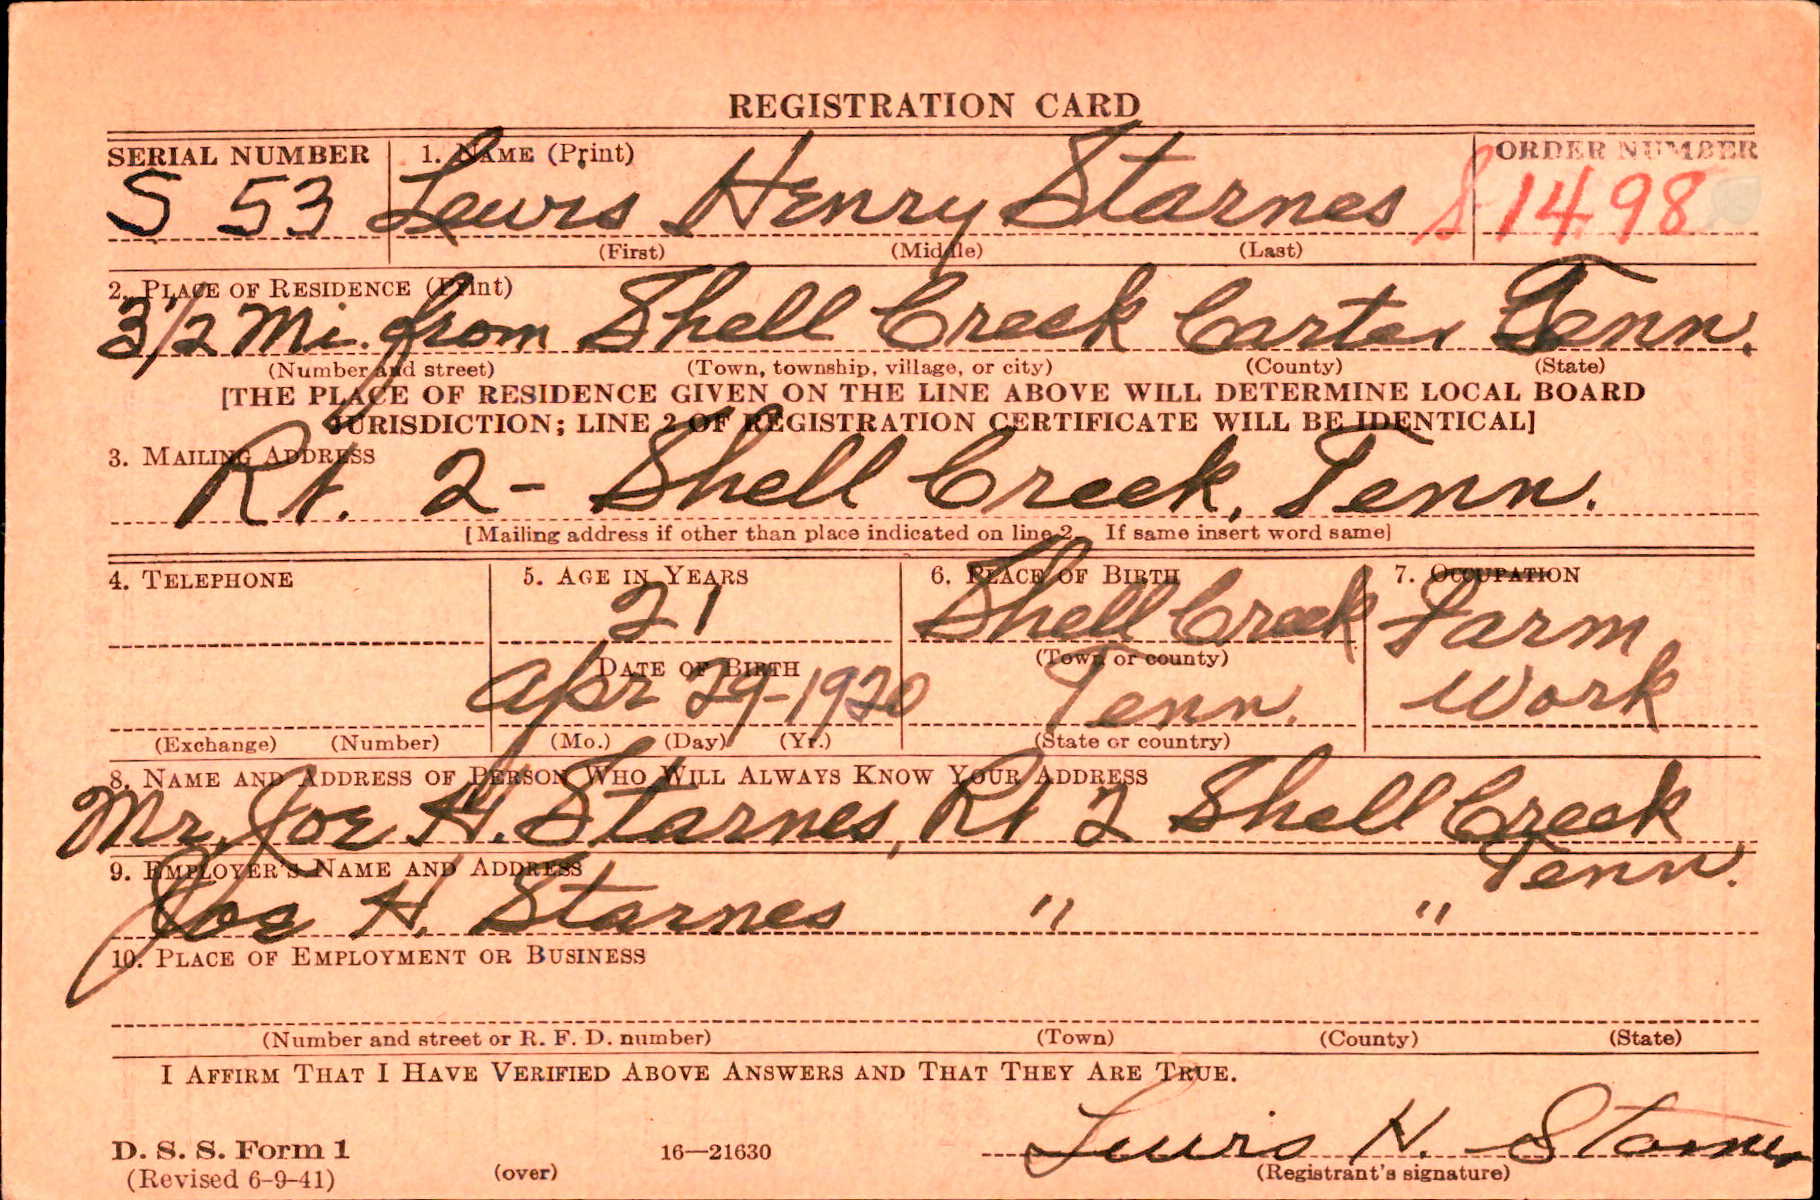 REGISTRATION CARD
SERIAL NUMBER 1. NAME (Print) ORDER NUMBER
S 53 Lewis Henry Starnes S 1498
(First) (Middle) (Last)
2. PLACE OF RESIDENCE (Print)
3 1/2 Mi. from Shell Creek Carter Tenn.
(Number and street) (Town, township, village, or city) (County) (State)
[THE PLACE OF RESIDENCE GIVEN ON THE LINE ABOVE WILL DETERMINE LOCAL BOARD
JURISDICTION; LINE 2 OF REGISTRATION CERTIFICATE WILL BE IDENTICAL]
3. MAILING ADDRESS
Rt. 2 - Shell Creek, Tenn.
[Mailing address if other than place indicated on line 2. If same insert word same]
4. TELEPHONE 5. AGE IN YEARS 6. PLACE OF BIRTH 7. OCCUPATION
21 Shell Creek Farm
DATE OF BIRTH (Town or county)
Apr 29-1920 Tenn. Work
(Exchange) (Number) (Mo.) (Day) (Yr.) (State or country)
8. NAME AND ADDRESS OF PERSON WHO WILL ALWAYS KNOW YOUR ADDRESS
Mr. Joe H. Starnes, Rt 2 Shell Creek
Tenn.
9. EMPLOYER'S NAME AND ADDRESS
Joe H. Starnes " "
10. PLACE OF EMPLOYMENT OR BUSINESS
(Number and street or R. F. D. number) (Town) (County) (State)
I AFFIRM THAT I HAVE VERIFIED ABOVE ANSWERS AND THAT THEY ARE TRUE.
Lewis H. Starnes
D. S. S. Form 1 16—21630
(Revised 6-9-41) (over) (Registrant's signature)